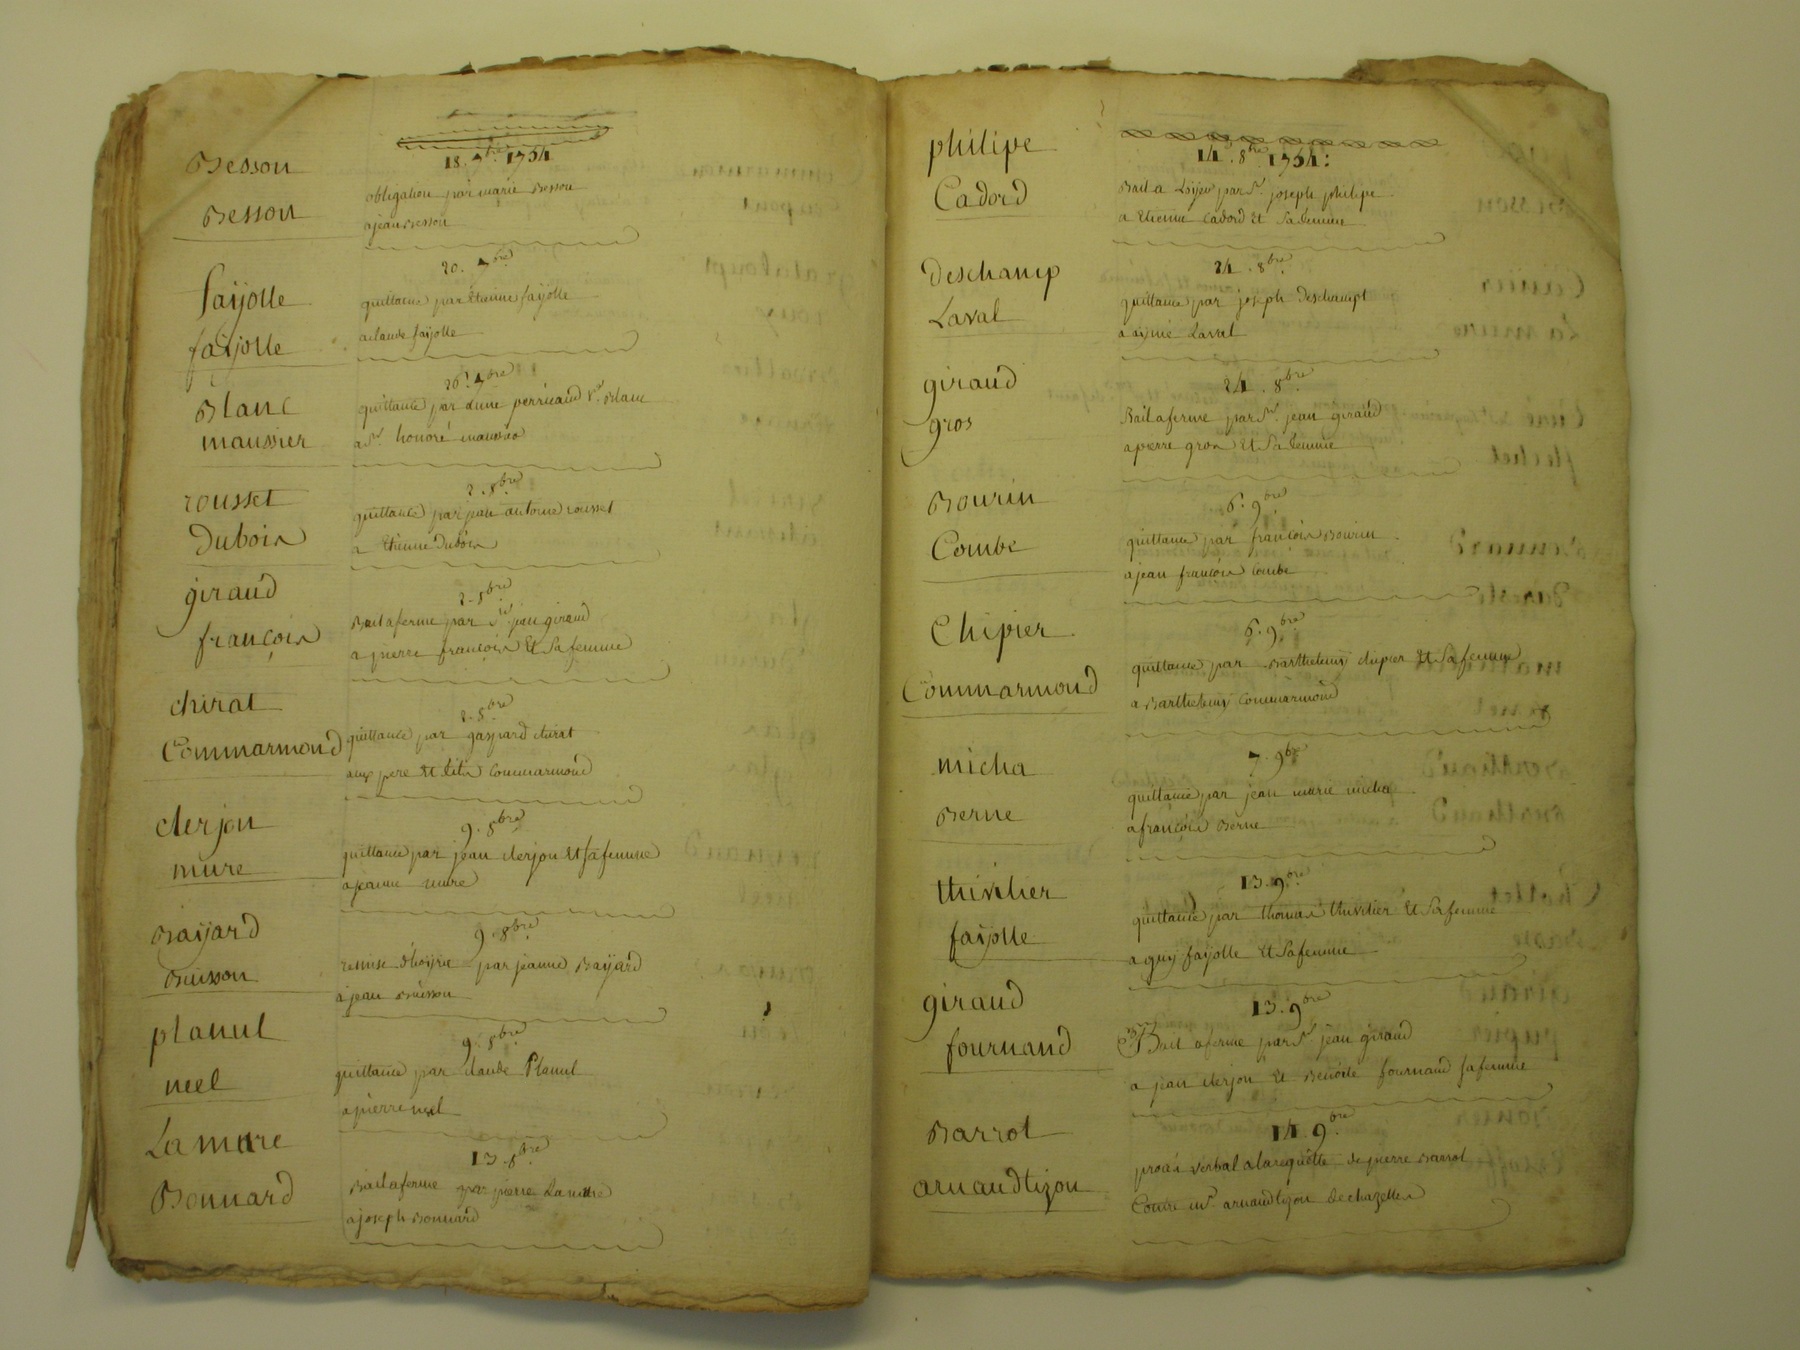 Besson
Besson
18. 7bre 1754
obligation par marie Besson
a jean Besson
fayolle
fayolle
20. 7bre
quittance par Etienne fayolle
a claude fayolle
Blanc
maussier
26. 7bre
quittance par perricaud Ve. Blanc
a Sr. honoré
rousset
Dubois
2. 8bre
quittance par jean antoine rousset
a Etienne Dubois
giraud
françois
2. 8bre
Bail a ferme par Sr. jean giraud
a pierre françois Et Sa femme
chirat
Commarmond
2. 8bre
quittance par gaspard chirat
aux pere Et fils Commarmond
clerjon
mure
9. 8bre
quittance par jean clerjon Et Sa femme
a jeanne mure
Bayard
Buisson
9. 8bre
remise d'hoyrie par jeanne Bayard
a jean Buisson
planul
neel
9. 8bre
quittance par claude Planul
a pierre neel
La mure
Bonnard
13. 8bre
Bail a ferme par pierre La mure
a joseph Bonnard
philipe
Cadord
14. 8bre 1754:
Bail a Loyer par Sr. joseph philipe
a Etienne Cadord Et Sa femme
Deschamp
Laval
24. 8bre
quittance par joseph Deschampt
a aymé Laval
giraud
gros
24. 8bre
Bail a ferme par Sr. jean giraud
a pierre gros Et Sa femme
Bourin
Combe
6. 9bre
quittance par françois Bourin
a jean françois Combe
Chipier
Commarmond
6. 9bre
quittance par Barthelemy chipier Et Sa femme
a Barthelemy Commarmond
micha
Berne
7. 9bre
quittance par jean marie micha
a françois Berne
thivilier
fayolle
13. 9bre
quittance par thomas thivilier Et Sa femme
a guy fayolle Et Sa femme
giraud
fournand
13. 9bre
Bail a ferme par Sr. jean giraud
a jean clerjon Et Benoite fournand sa femme
Barrot
arnaudtizon
14. 9bre
procès verbal a la requette de pierre Barrot
Contre mr. arnaudtizon de chazelles